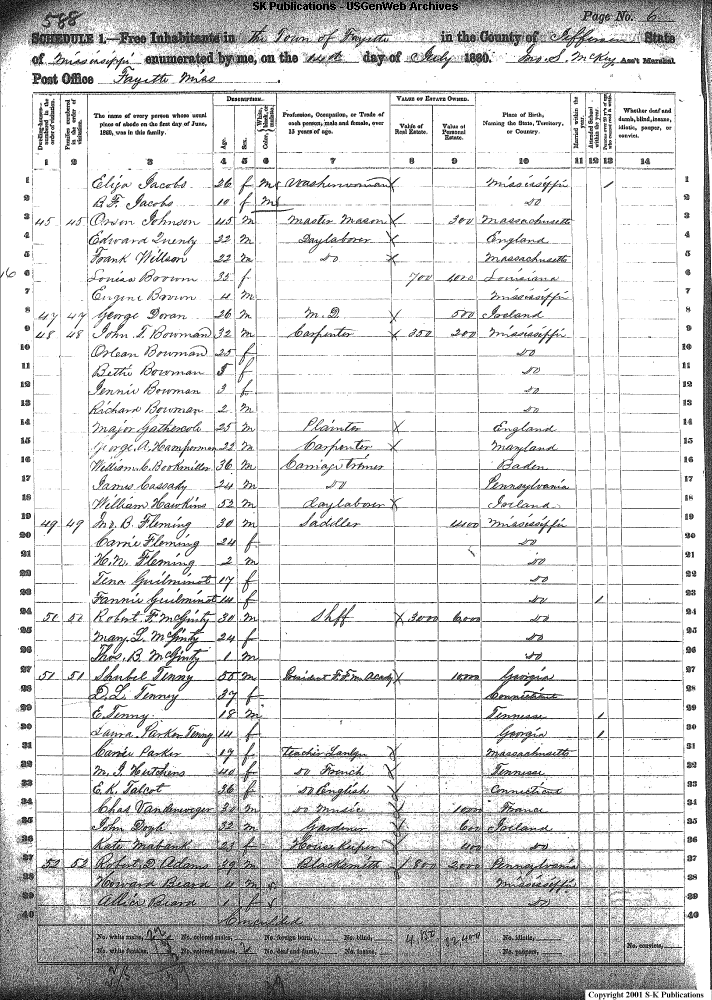 SK Publications - USGenWeb Archives
588
Page No. 6
SCHEDULE 1.—Free Inhabitants in the Town of Fayette in the County of Jefferson State
of Mississippi enumerated by me, on the day of July 1860. Jno. S. McKey Ass't Marshal.
Post Office Fayette Miss
Dwelling-houses—numbered in the order of visitation. Families numbered in the order of visitation. The name of every person whose usual place of abode on the first day of June, 1860, was in this family. DESCRIPTION. Age. Sex. Color, White, black, or mulatto. Profession, Occupation, or Trade of each person, male and female, over 15 years of age. VALUE OF ESTATE OWNED. Value of Real Estate. Value of Personal Estate. Place of Birth, Naming the State, Territory, or Country. Married within the year. Attended School within the year. Whether deaf and dumb, blind, insane, idiotic, pauper, or convict.
1 2 3 4 5 6 7 8 9 10 11 12 13 14
1 Eliza Jacobs 26 f M Washerwoman X Mississippi / 1
2 B.F. Jacobs 10 f M Do 2
3 45 45 Orson Johnson 45 m Master Mason X 300 Massachusetts 3
4 Edward 22 m Daylaborer X England 4
5 Frank Willson 22 m Do X Massachusetts 5
6 Louisa Brown 35 f 700 4000 Louisiana 6
7 Eugene Brown 4 m Mississippi 7
8 47 47 George Doran 26 m M.D. 500 Ireland 8
9 48 48 John T. Bowman 32 m Carpenter X 350 200 Mississippi 9
10 Orlean Bowman 25 f Do 10
11 Bettie Bowman 5 f Do 11
12 Jennie Bowman 3 f Do 12
13 Richard Bowman 2 m Do 13
14 Major Gathercole 25 m X England 14
15 George A. Hamperman 22 m Carpenter X Maryland 15
16 William C. Bookmiller 36 m Carriage trimer Baden 16
17 James Cassady 24 m Do Pennsylvania 17
18 William Hawkins 52 m daylaborer X Ireland 18
19 49 49 Jno. B. Fleming 30 m Saddler 1400 Mississippi 19
20 Carrie Fleming 24 f Do 20
21 H.N. Fleming 2 m Do 21
22 Tena Guilminot 17 f Do 22
23 Fannie Guilminot 14 f Do 1 23
24 50 50 Robert F. McGinty 30 m Shff X 3000 6000 Do 24
25 Mary L. McGinty 24 f Do 25
26 Thos. B. McGinty 1 m Do 26
27 51 51 Shubel Tenny 55 m President F. Fm Acady X 1000 Georgia 27
28 D.L. Tenney 37 f Connecticut 28
29 E. Tenny 18 m Tennesse 1 29
30 Laura Parker Tenny 14 f Georgia 1 30
31 Carrie Parker 19 f teacher X Massachusetts 31
32 M.J. Hutchens 40 f do French X Tennesse 32
33 E.K. Talcot 36 f do English X Connecticut 33
34 Chas Vandenweger 30 m do Music X 1000 France 34
35 John Doyle 32 m Gardener X 600 Ireland 35
36 Kate Mabank 23 f House Keeper X 400 Do 36
37 52 52 Robert D. Adams 39 m Blacksmith X 800 2000 Pennsylvania 37
38 Howard Beard 4 m Mississippi 38
39 Allice Beard 1 f Do 39
40 40
No. white males, 22 No. colored males, No. foreign born, No. blind, 4,850 22,400 No. idiotic, No. convicts,
No. white females, No. colored females, 2 No. deaf and dumb, No. insane, No. paupers,
Copyright 2001 S-K Publications